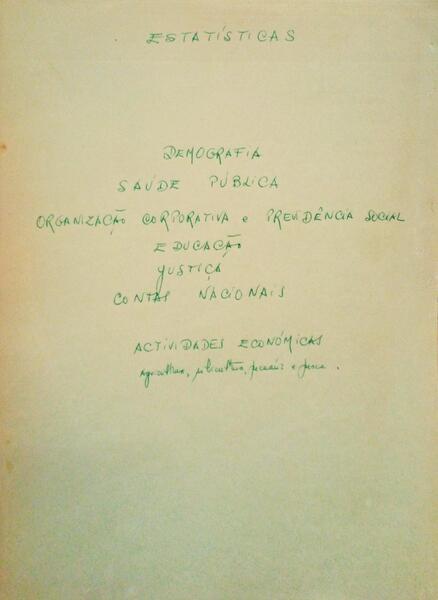 ESTATÍSTICAS
DEMOGRAFIA
SAÚDE PÚBLICA
ORGANIZAÇÃO CORPORATIVA e PREVIDÊNCIA SOCIAL
EDUCAÇÃO
JUSTIÇA
CONTAS NACIONAIS
ACTIVIDADES ECONÓMICAS
Agricultura, silvicultura, pecuária e pesca.